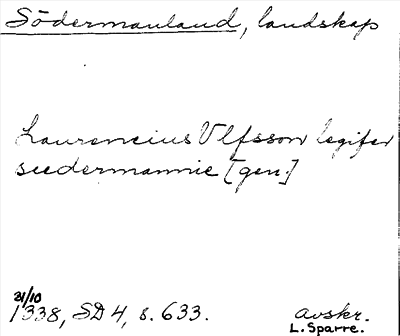 Södermanland, landskap
Laurencius Vlfsson legifer
sudermannie [gen.]
31/10
1338, SD 4, s. 633.
avskr.
L. Sparre.